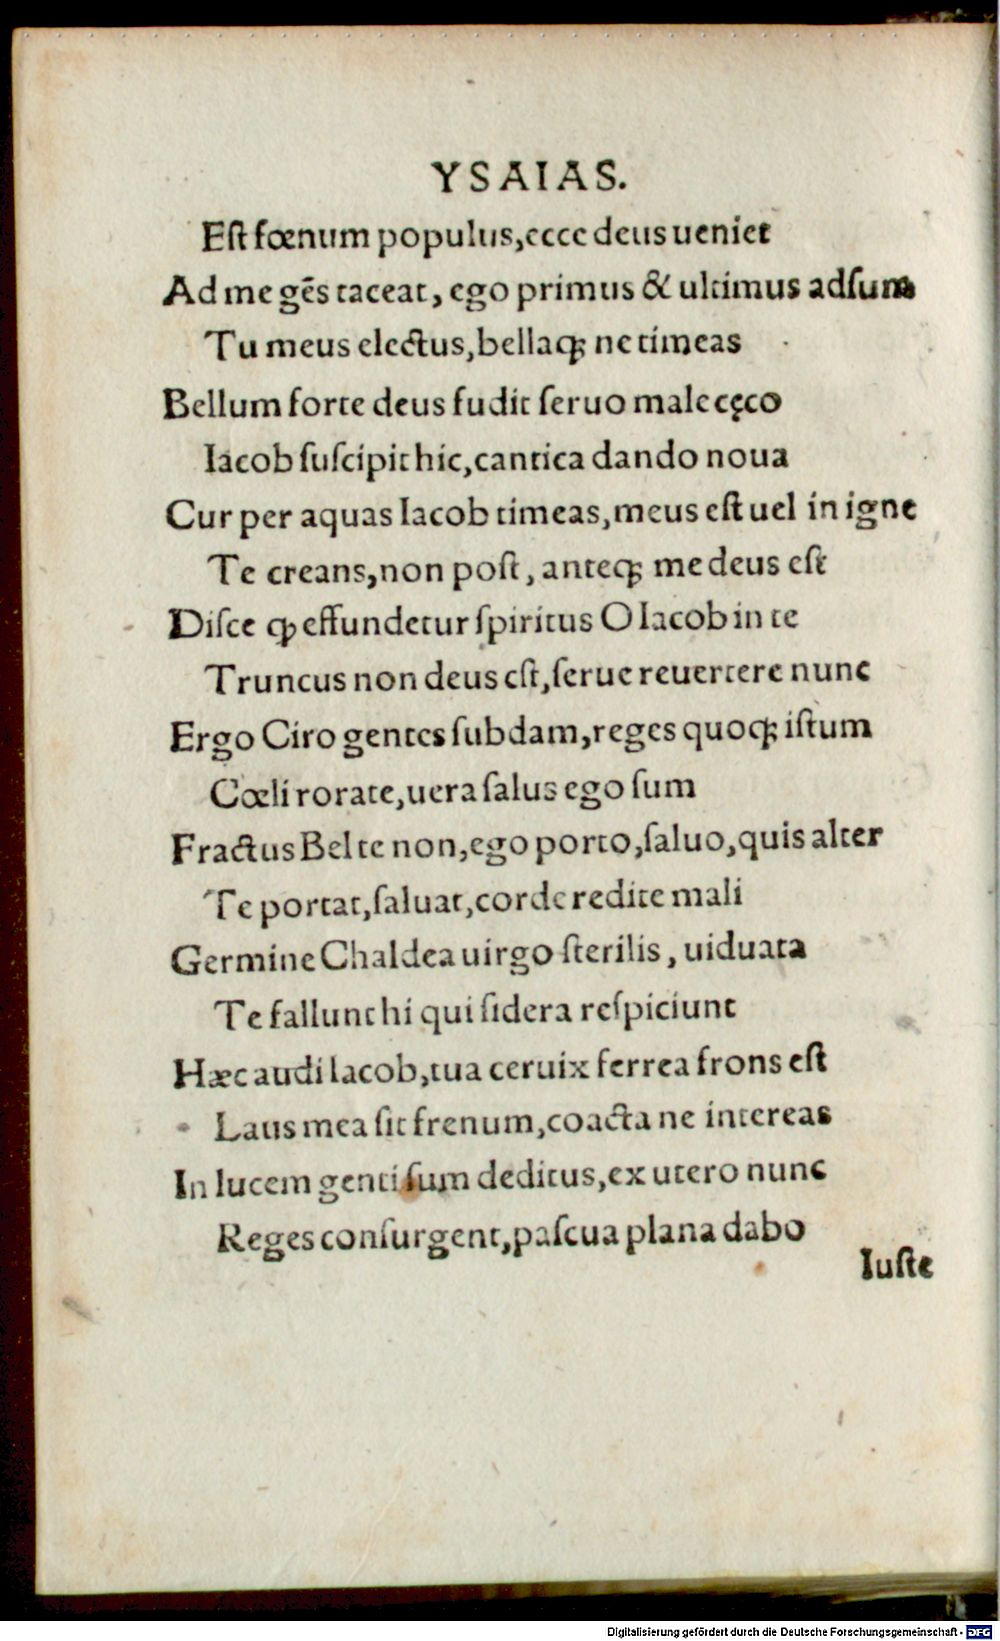 YSAIAS.
Est fœnum populus,ecce deus ueniet
Ad me gēs taceat, ego primus & ultimus adsum
Tu meus electus,bellaqꝫ ne timeas
Bellum forte deus fudit seruo male cęco
Iacob suscipit hic,cantica dando noua
Cur per aquas Iacob timeas,meus est uel in igne
Te creans,non post, anteqꝫ me deus est
Disce ꝙ effundetur spiritus O Iacob in te
Truncus non deus est,serue reuertere nunc
Ergo Ciro gentes subdam,reges quoqꝫ istum
Cœli rorate,uera salus ego sum
Fractus Bel te non,ego porto,saluo,quis alter
Te portat,saluat,corde redite mali
Germine Chaldea uirgo sterilis, uiduata
Te fallunt hi qui sidera respiciunt
Hæc audi Iacob,tua ceruix ferrea frons est
Laus mea sit frenum,coacta ne intereas
In lucem genti sum deditus,ex utero nunc
Reges consurgent,pascua plana dabo
Iuste
Digitalisierung gefördert durch die Deutsche Forschungsgemeinschaft - DFG